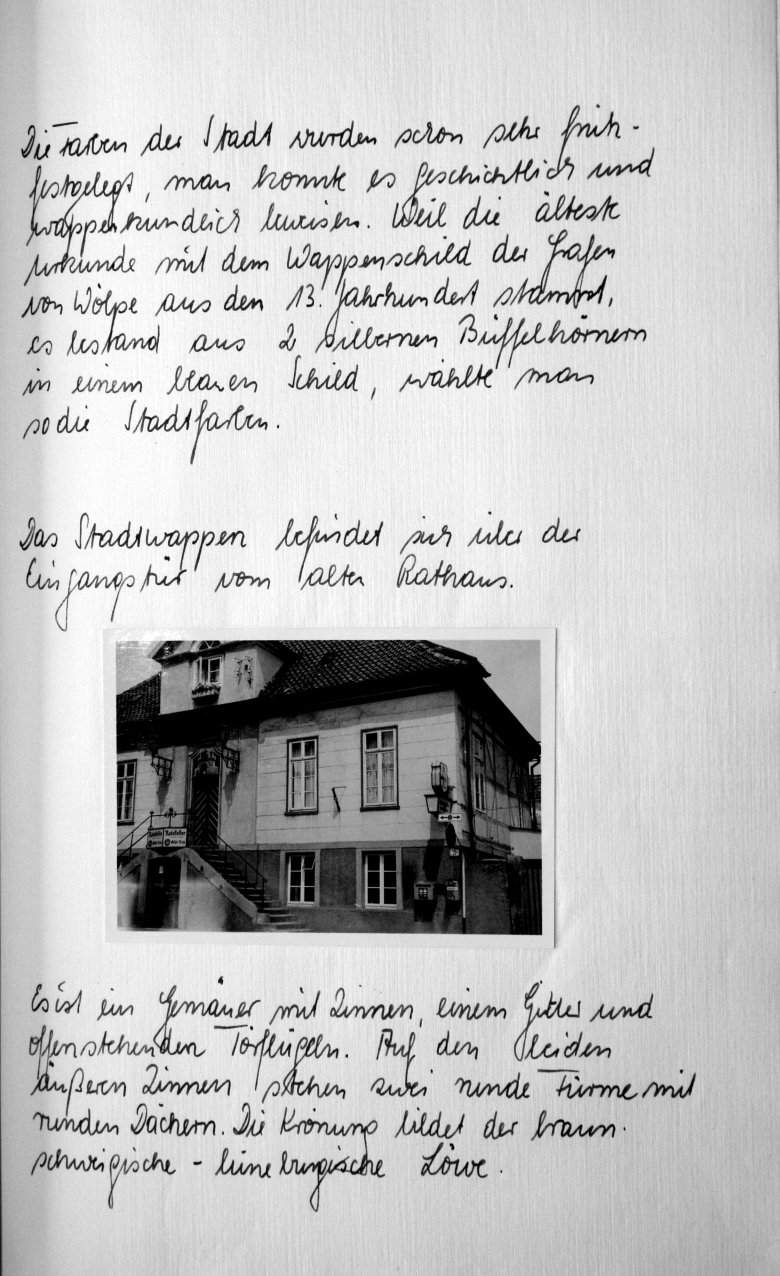 Die Farben der Stadt wurden schon sehr früh
festgelegt, man konnte es geschichtlich und
wappenkundlich beweisen. Weil die älteste
Urkunde mit dem Wappenschild der Grafen
von Wölpe aus den 13. Jahrhundert stammt,
es bestand aus 2 silbernen Büffelhörnern
in einem blauen Schild, wählte man
so die Stadtfarben.
Das Stadtwappen befindet sich über der
Eingangstür vom alten Rathaus.
Ratskeller
Es ist ein Gemäuer mit Zinnen, einem Gitter und
offenstehenden Torflügeln. Auf den beiden
äußeren Zinnen stehen zwei runde Türme mit
runden Dächern. Die Krönung bildet der braun-
schweigische - lüneburgische Löwe.